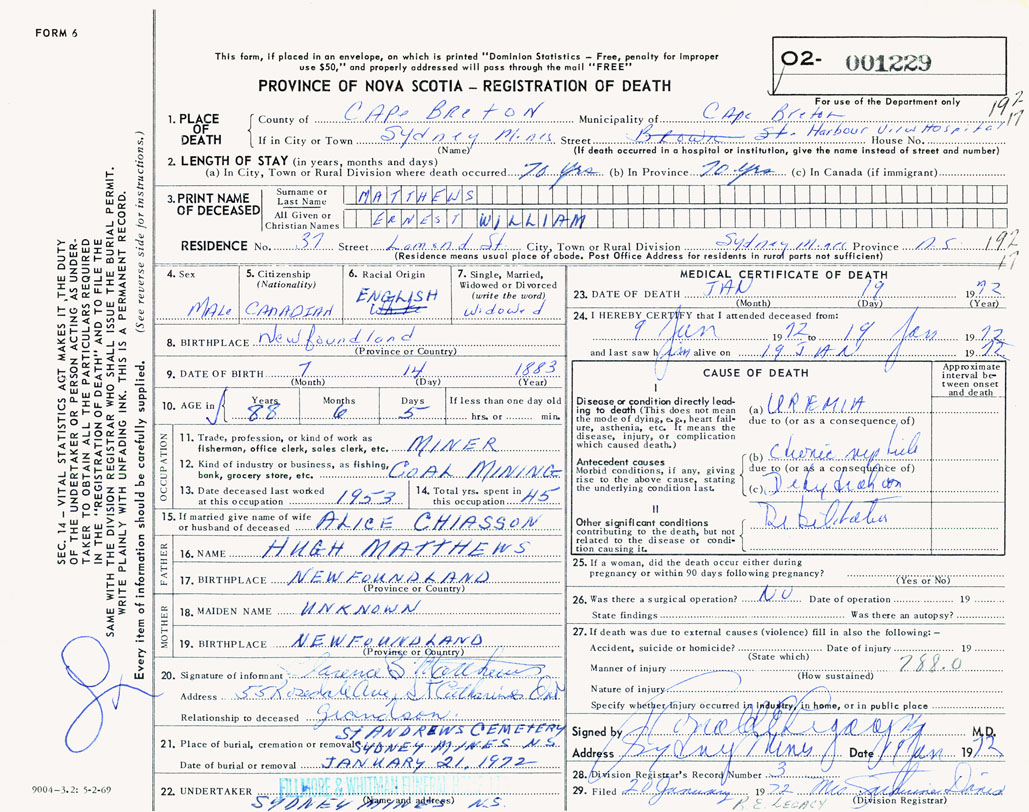 FORM 6
This form, if placed in an envelope, on which is printed "Dominion Statistics – Free, penalty for improper
use $50," and properly addressed will pass through the mail "FREE"
PROVINCE OF NOVA SCOTIA – REGISTRATION OF DEATH
O2- 001229
For use of the Department only
192
17
1. PLACE OF DEATH
County of CAPE BRETON Municipality of Cape Breton
If in City or Town Sydney Mines Street Brown St. Harbour View Hospital House No.
(Name) (If death occurred in a hospital or institution, give the name instead of street and number)
2. LENGTH OF STAY (in years, months and days)
(a) In City, Town or Rural Division where death occurred 70 yrs (b) In Province 70 yrs (c) In Canada (if immigrant)
3. PRINT NAME OF DECEASED
Surname or Last Name MATTHEWS
All Given or Christian Names ERNEST WILLIAM
RESIDENCE No. 37 Street Lamond St. City, Town or Rural Division Sydney Mines Province N.S. 192
17
(Residence means usual place of abode. Post Office Address for residents in rural parts not sufficient)
4. Sex
MALE
5. Citizenship
(Nationality)
CANADIAN
6. Racial Origin
ENGLISH
White
7. Single, Married,
Widowed or Divorced
(write the word)
Widowed
8. BIRTHPLACE Newfoundland
(Province or Country)
9. DATE OF BIRTH 7 14 1883
(Month) (Day) (Year)
10. AGE in
Years Months Days If less than one day old
88 6 5 hrs. or min.
OCCUPATION
11. Trade, profession, or kind of work as
fisherman, office clerk, sales clerk, etc. MINER
12. Kind of industry or business, as fishing,
bank, grocery store, etc. COAL MINING
13. Date deceased last worked
at this occupation 1953
14. Total yrs. spent in
this occupation 45
15. If married give name of wife
or husband of deceased ALICE CHIASSON
FATHER
16. NAME HUGH MATTHEWS
17. BIRTHPLACE NEWFOUNDLAND
(Province or Country)
MOTHER
18. MAIDEN NAME UNKNOWN
19. BIRTHPLACE NEWFOUNDLAND
(Province or Country)
20. Signature of informant Matthews
Address 55 Rosedale Ave, St Catharines Ont
Relationship to deceased Grandson
ST ANDREWS CEMETERY
21. Place of burial, cremation or removal SYDNEY MINES N.S.
Date of burial or removal JANUARY 21, 1972
FILLMORE & WHITMAN FUNERAL
22. UNDERTAKER SYDNEY MINES N.S.
(Name and address)
MEDICAL CERTIFICATE OF DEATH
23. DATE OF DEATH JAN 19 1972
(Month) (Day) (Year)
24. I HEREBY CERTIFY that I attended deceased from:
9 Jan 1972 to 19 Jan 1972
and last saw him alive on 19 JAN 1972
CAUSE OF DEATH
Approximate
interval be-
tween onset
and death
I
Disease or condition directly lead-
ing to death (This does not mean
the mode of dying, e.g., heart fail-
ure, asthenia, etc. It means the
disease, injury, or complication
which caused death.)
(a) UREMIA
due to (or as a consequence of)
Antecedent causes
Morbid conditions, if any, giving
rise to the above cause, stating
the underlying condition last.
(b) Chronic nephritis
due to (or as a consequence of)
(c) Dehydration
II
Other significant conditions
contributing to the death, but not
related to the disease or condi-
tion causing it.
Debilitation
25. If a woman, did the death occur either during
pregnancy or within 90 days following pregnancy?
(Yes or No)
26. Was there a surgical operation? NO Date of operation 19
State findings Was there an autopsy?
27. If death was due to external causes (violence) fill in also the following: –
Accident, suicide or homicide? Date of injury 19
(State which)
Manner of injury 788.0
(How sustained)
Nature of injury
Specify whether injury occurred in industry, in home, or in public place
Signed by M.D.
Address Sydney Mines Date 19 Jan 1972
28. Division Registrar's Record Number 3
29. Filed 20 January 1972 Mrs Davis
(Division Registrar)
P.E. LEGACY
SEC. 14 – VITAL STATISTICS ACT MAKES IT THE DUTY
OF THE UNDERTAKER OR PERSON ACTING AS UNDER-
TAKER TO OBTAIN ALL THE PARTICULARS REQUIRED
IN THE "REGISTRATION OF DEATH" AND TO FILE THE
SAME WITH THE DIVISION REGISTRAR WHO SHALL ISSUE THE BURIAL PERMIT.
WRITE PLAINLY WITH UNFADING INK. THIS IS A PERMANENT RECORD.
Every item of information should be carefully supplied. (See reverse side for instructions.)
9004-3.2: 5-2-69